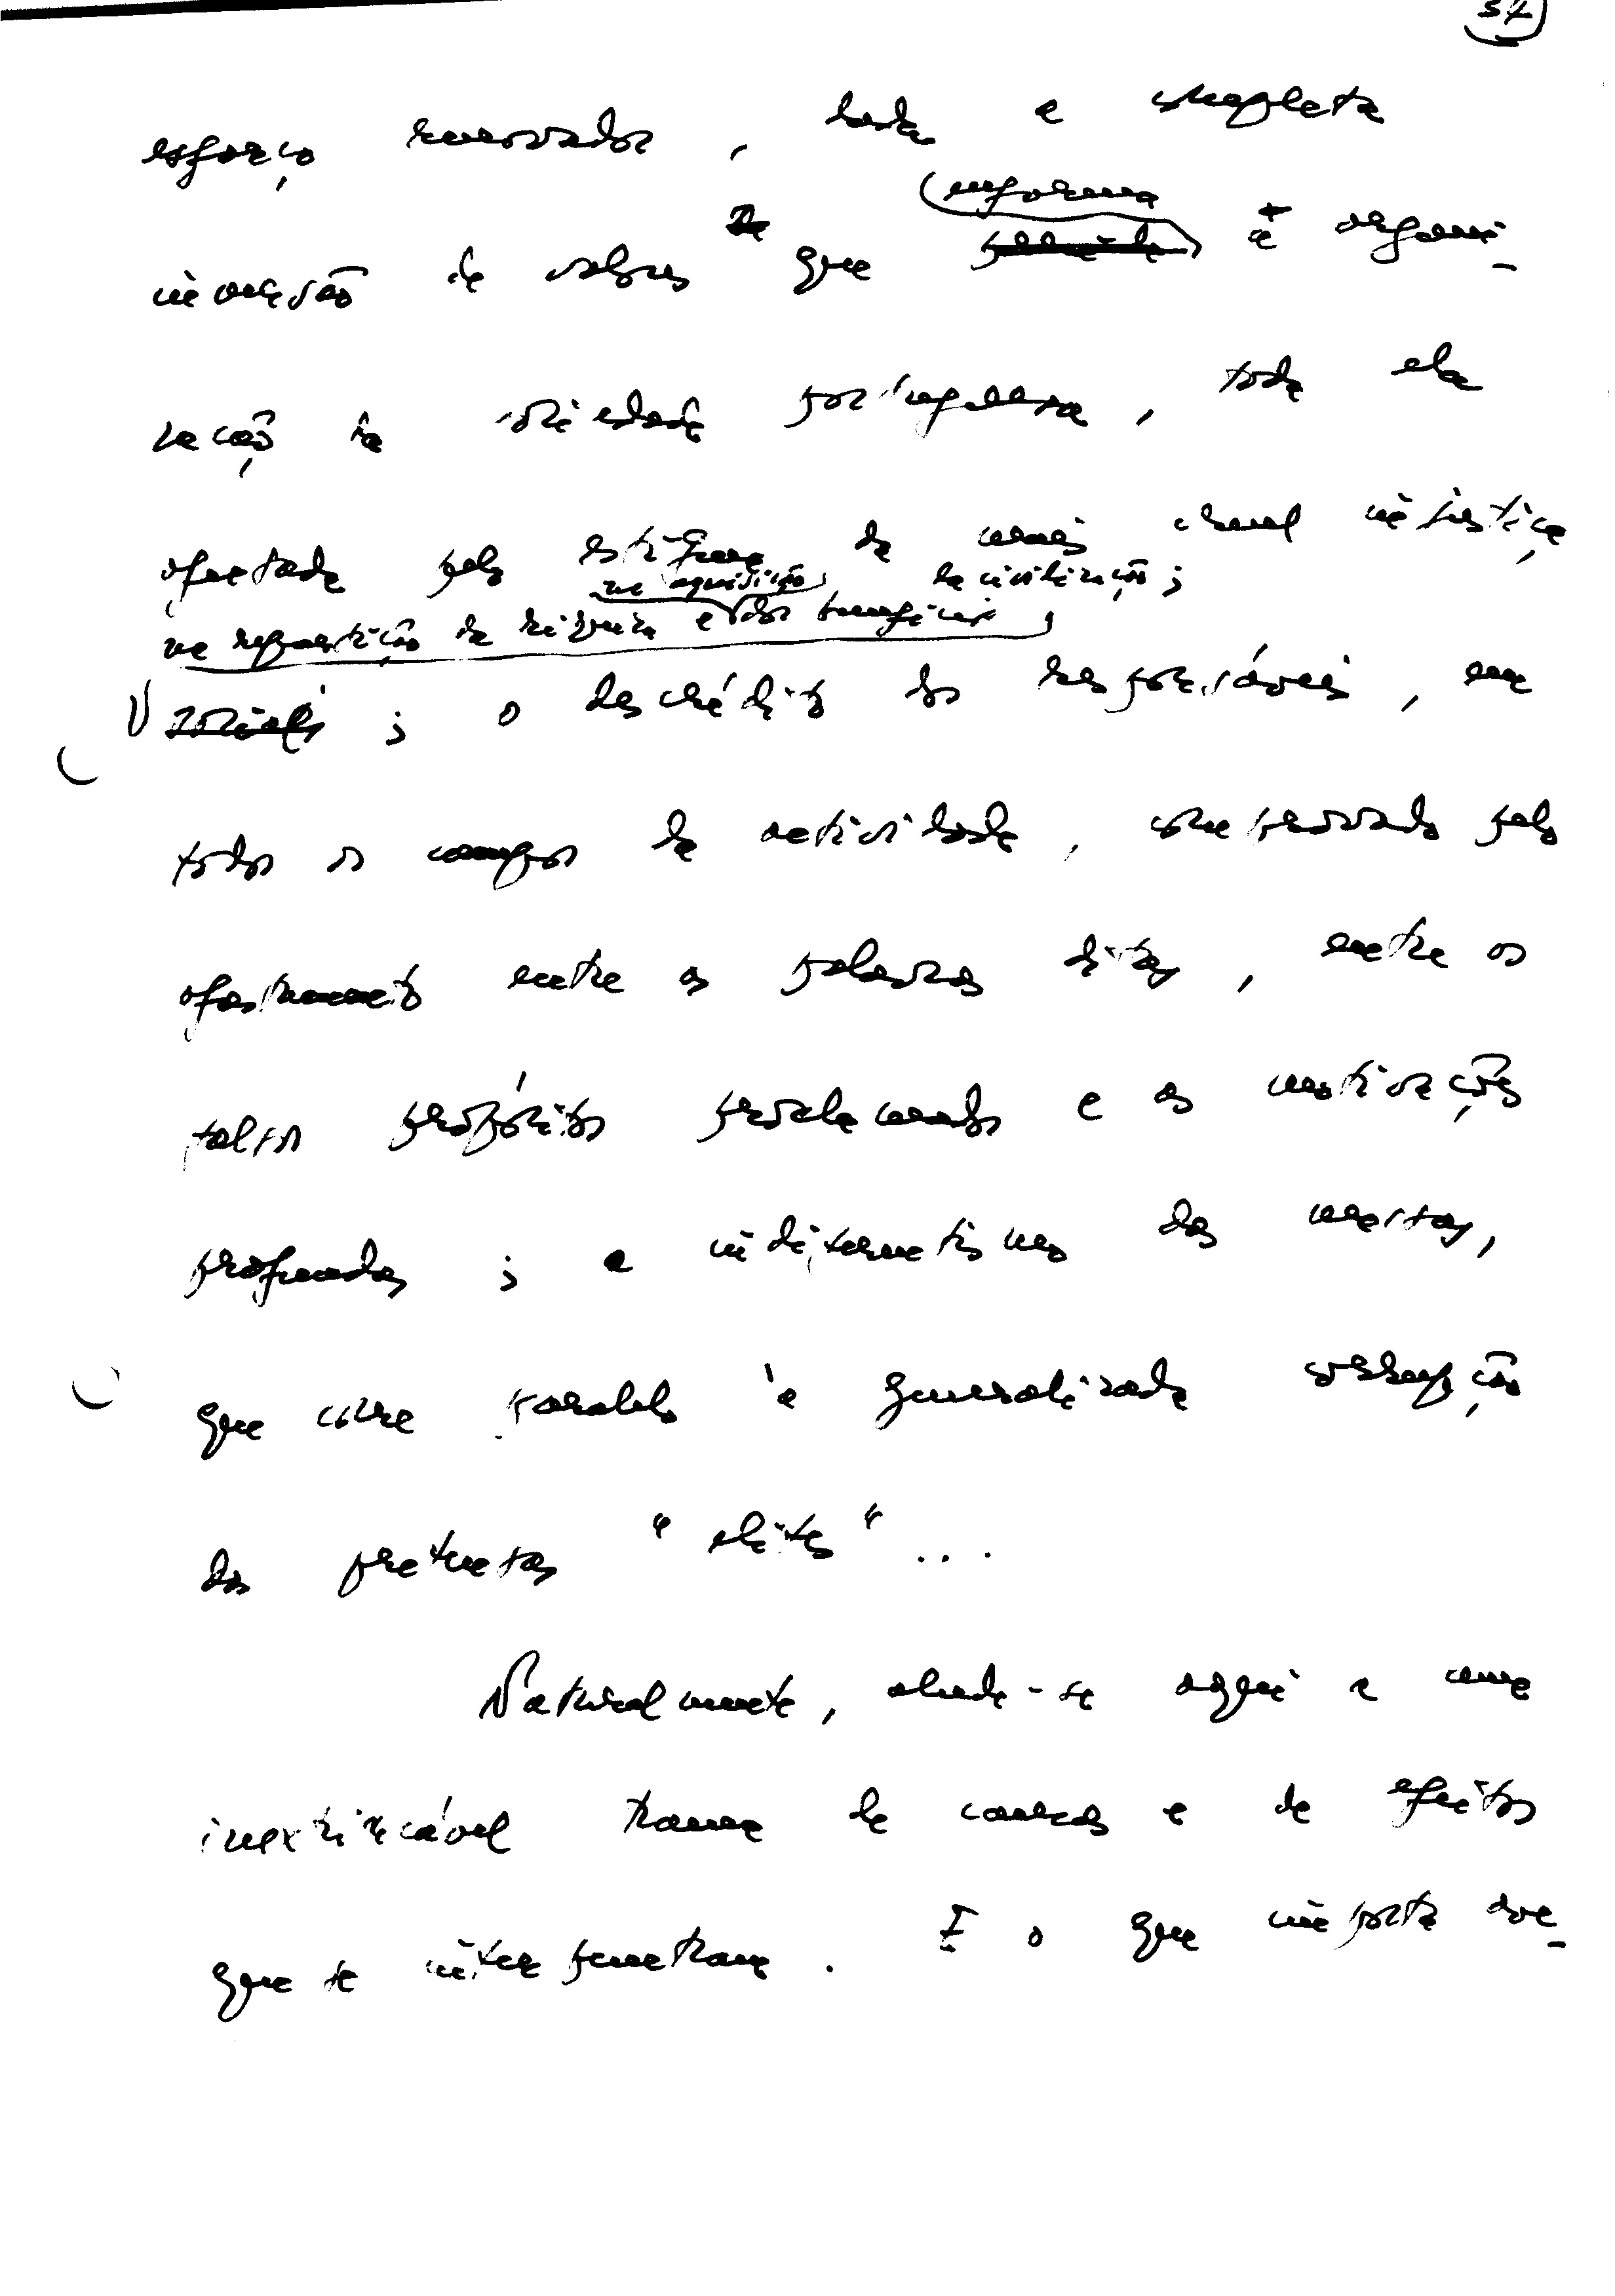 esforço renovador, dada a completa
informa
inversão de valores que a organi-
zação da sociedade portuguesa, toda ela
afectada pelo estigma da mais cruel injustiça
na aquisição da civilização;
na repartição da riqueza e dos benefícios
sociais; o descrédito dos responsáveis, em
todos os campos da actividade, comprovado pelo
afastamento entre as palavras ditas, entre os
falsos propósitos proclamados e as motivações
profundas; o indiferentismo das massas,
que corre paralelo à generalizada corrupção
das pretensas "elites"...
Naturalmente, alude-se aqui a uma
inextricável trama de causas e de efeitos
que se interpenetram. E o que importa ave-